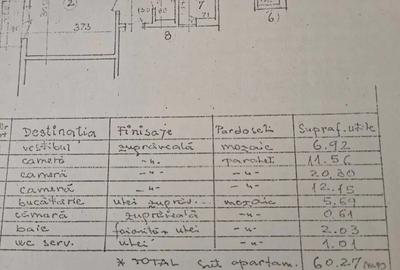 2
373
8
7
71
6)
Destinația Finisaje Pardoseli Supraf. utile
vestibul zugrăveală mozaic 6.92
cameră -„- parchet 11.56
cameră -„- -„- 20,30
cameră -„- -„- 12.15
bucătărie ulei zugrăv... mozaic 5,69
cămară zugrăveală -„- 0.61
baie faianță + ulei -„- 2.03
wc serv. ulei -„- 1.01
* TOTAL apartam. 60.27 mp